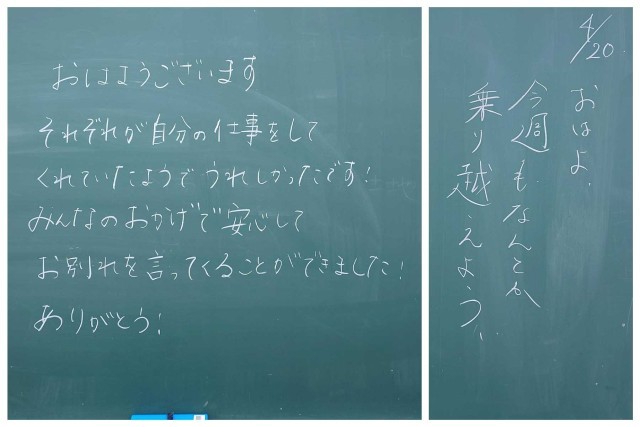 おはようございます
それぞれが自分の仕事をして
くれていたようでうれしかったです!
みんなのおかげで安心して
お別れを言ってくることができました!
ありがとう!
4/20
おはよ、
今週もなんとか
乗り越えよう、